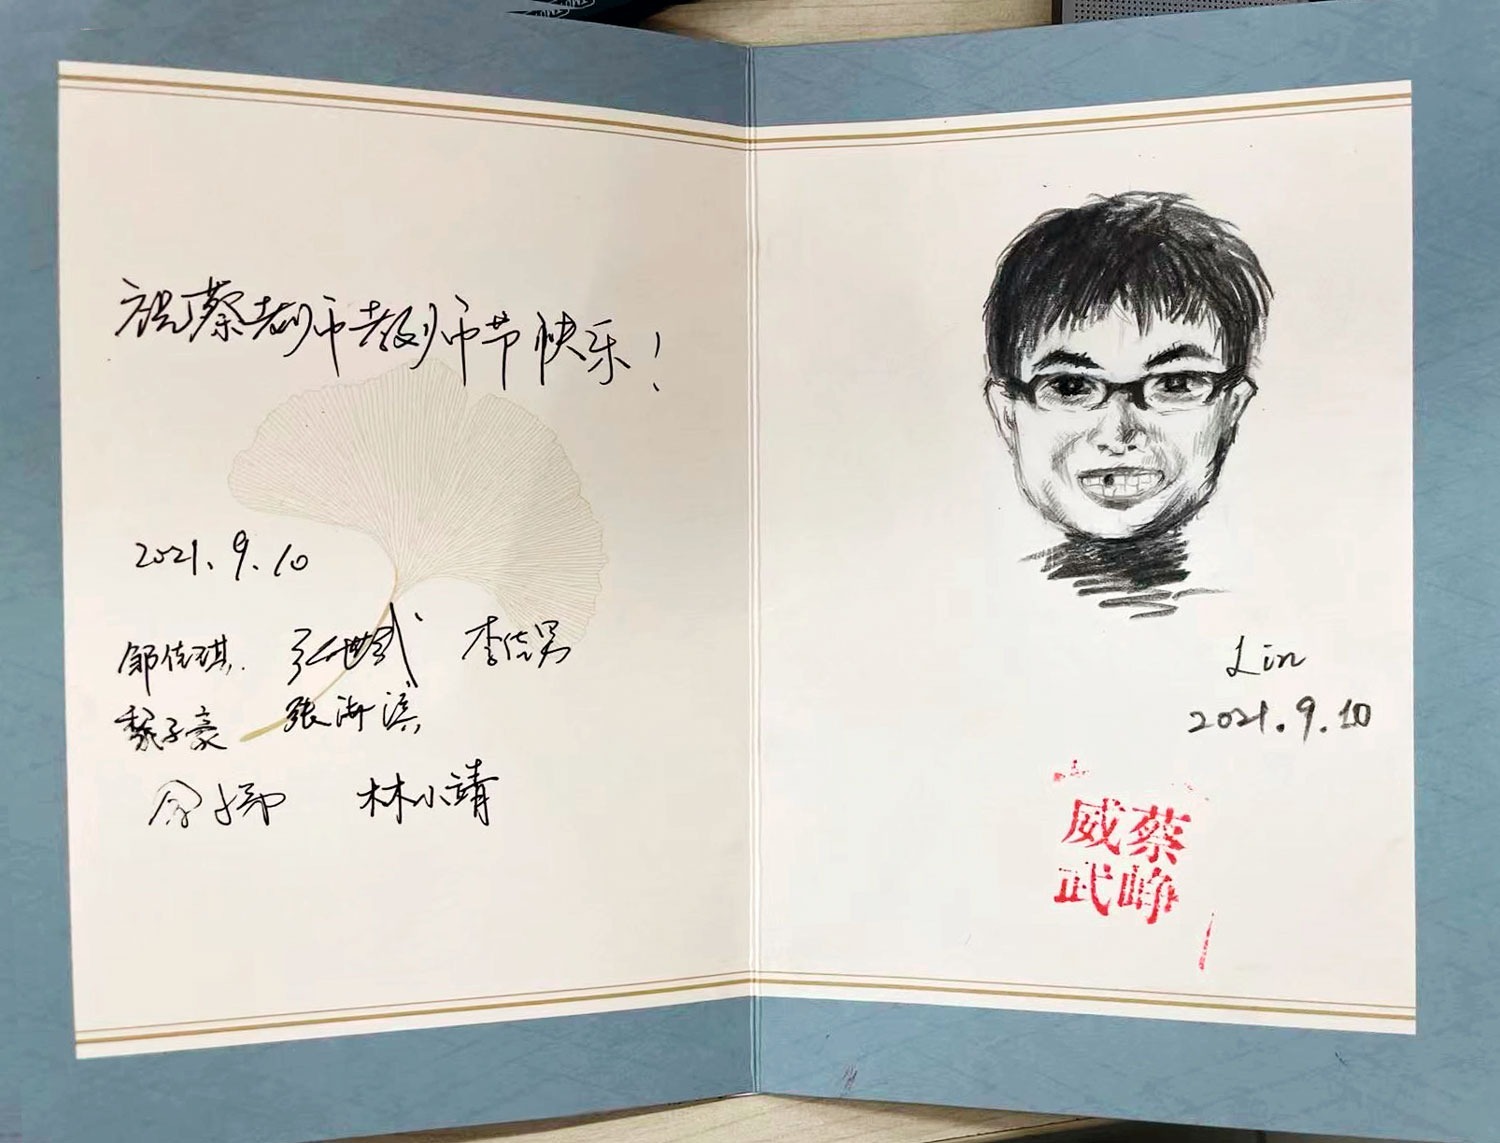 祝蔡老师教师节快乐！
2021.9.10
邹佳琪 张世武 李信男
魏子豪 张海滨
余娣 林小靖
Lin
2021.9.10
威蔡
武峥